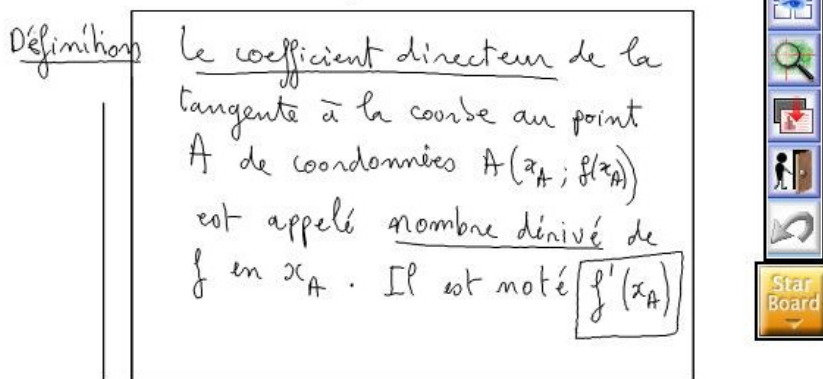 Définition
Le coefficient directeur de la
tangente à la courbe au point
A de coordonnées A(x_A ; f(x_A))
est appelé nombre dérivé de
f en x_A . Il est noté f'(x_A)
Star
Board